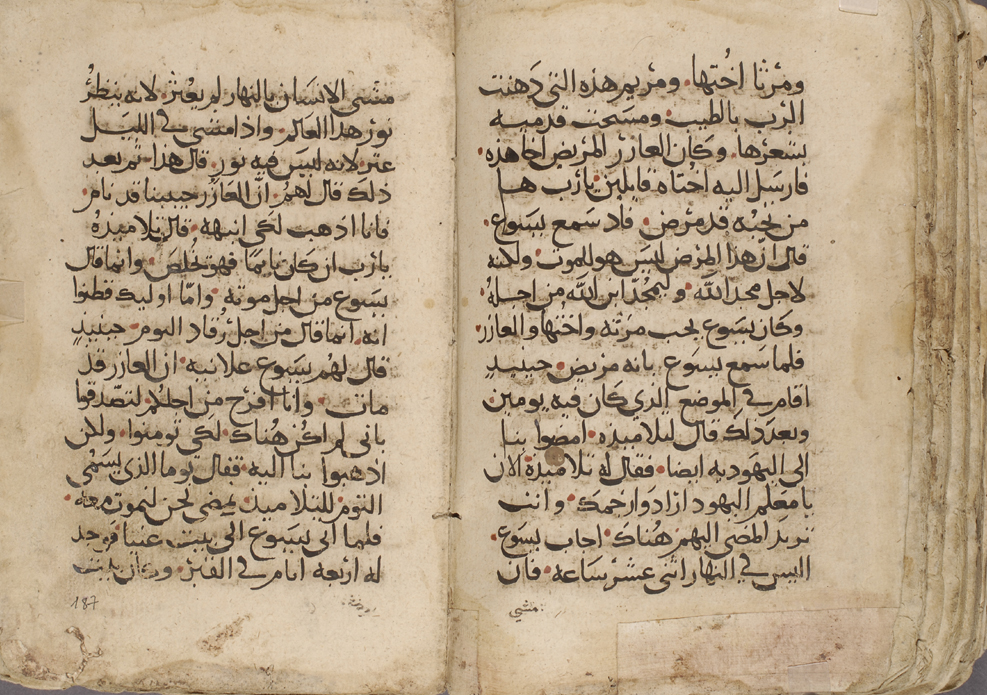 ومرثا اختها. ومريم هذه التي دهنت
الرب بالطيب. ومسحت قدميه
بشعرها. وكان العازر المريض اخا هذه.
فارسل اليه اختاه قايلين. يارب ها
من تحبه قد مرض. فاد سمع يسوع.
قال ان هذا المرض ليس هو للموت. ولكنه
لاجل مجد الله. وليمجد ابن الله من اجله.
وكان يسوع يحب مرثه واختها والعازر.
فلما سمع يسوع بانه مريض. حينيد
اقام في الموضع الدي كان فيه يومين
وبعد دلك قال لتلاميذه. امضوا بنا
الى اليهوديه ايضا. فقال له تلاميذه الان
يا معلم اليهود ارادوا رجمك. وانت
تريد المضي اليهم هناك. اجاب يسوع.
اليس في النهار اثنى عشر ساعه. فان
مشي
مشى الانسان بالنهار لم يعثر. لانه ينظر
نور هدا العالم. وادا مشى في الليل
عثر. لانه ليس فيه نور. قال هدا. ثم بعد
دلك قال لهم. ان العازر حبيبنا قد نام.
فانا ادهب لكي انبهه. قال تلاميذه
يارب ان كان نايما فهو يخلص. وانما قال
يسوع من اجل موته. واما اوليك فظنوا
انه انما قال من اجل رقاد النوم. حينيد
قال لهم يسوع علانيه. ان العازر قد
مات. وانا افرح من اجلكم لتصدقوا
باني لم اكن هناك. لكي تومنوا. ولكن
ادهبوا بنا اليه. فقال توما الذي يسمى
التوم للتلاميذ. نمضي نحن لنموت معه.
فلما اتى يسوع الى بيت عنيا فوجد
له اربعه ايام في القبر. وكان بيت
187